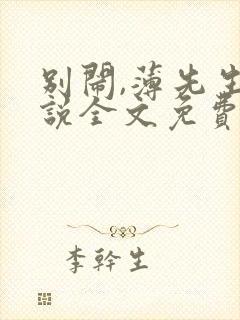 别闹,薄先生
說全文免費
李幹生